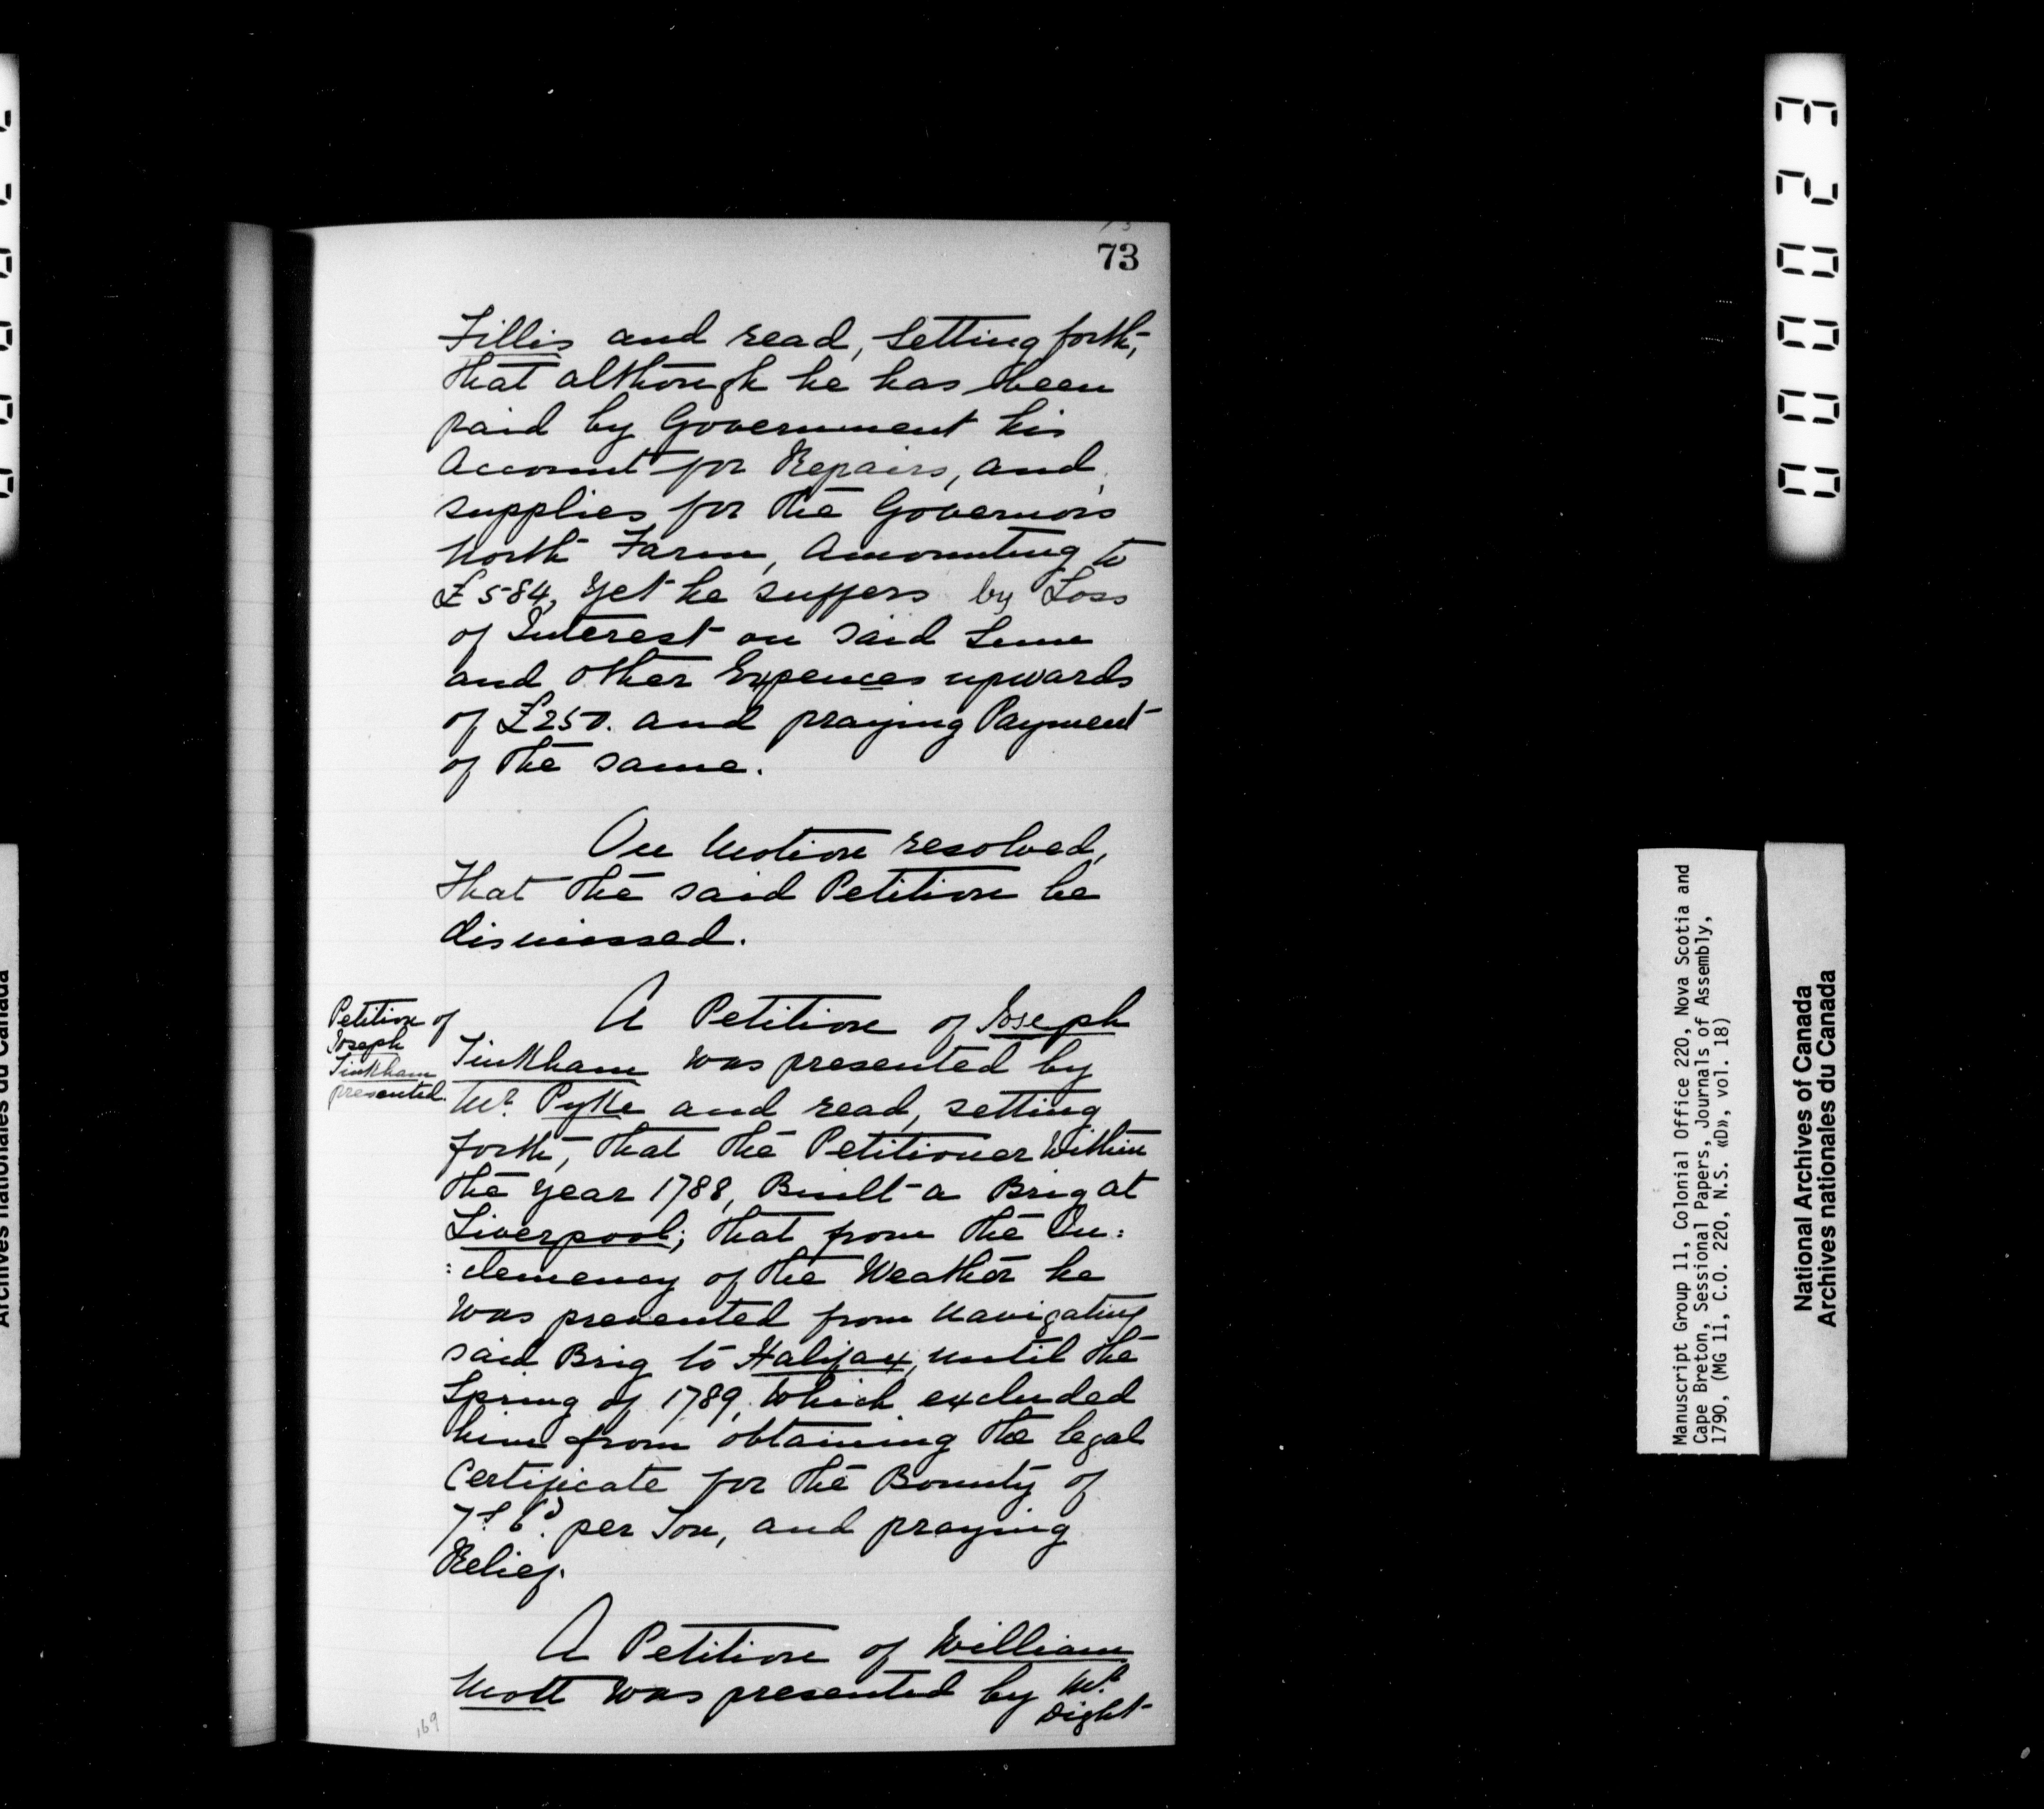 73
Fillis and read, Setting forth,
that although he has been
paid by Government his
Account for Repairs, and
supplies for the Governors
North Farm, Amounting to
£584, Yet he suffers by Loss
of Interest on said Sum
and other Expences upwards
of £250. and praying Payment
of the same.
On Motion resolved,
That the said Petition be
dismissed.
Petition of
Joseph
Tinkham
presented.
A Petition of Joseph
Tinkham was presented by
Mr. Pyke and read, setting
forth, that the Petitioner Within
the Year 1788, Built a Brig at
Liverpool; that from the In:
:clemency of the Weather he
was prevented from navigating
said Brig to Halifax, until the
Spring of 1789, Which excluded
him from obtaining the legal
Certificate for the Bounty of
7s. 6d. per Ton, and praying
Relief.
A Petition of William
Mott was presented by Mr.
Dight
169
00023
Manuscript Group 11, Colonial Office 220, Nova Scotia and
Cape Breton, Sessional Papers, Journals of Assembly,
1790, (MG 11, C.O. 220, N.S. «D», vol. 18)
National Archives of Canada
Archives nationales du Canada
Archives nationales du Canada